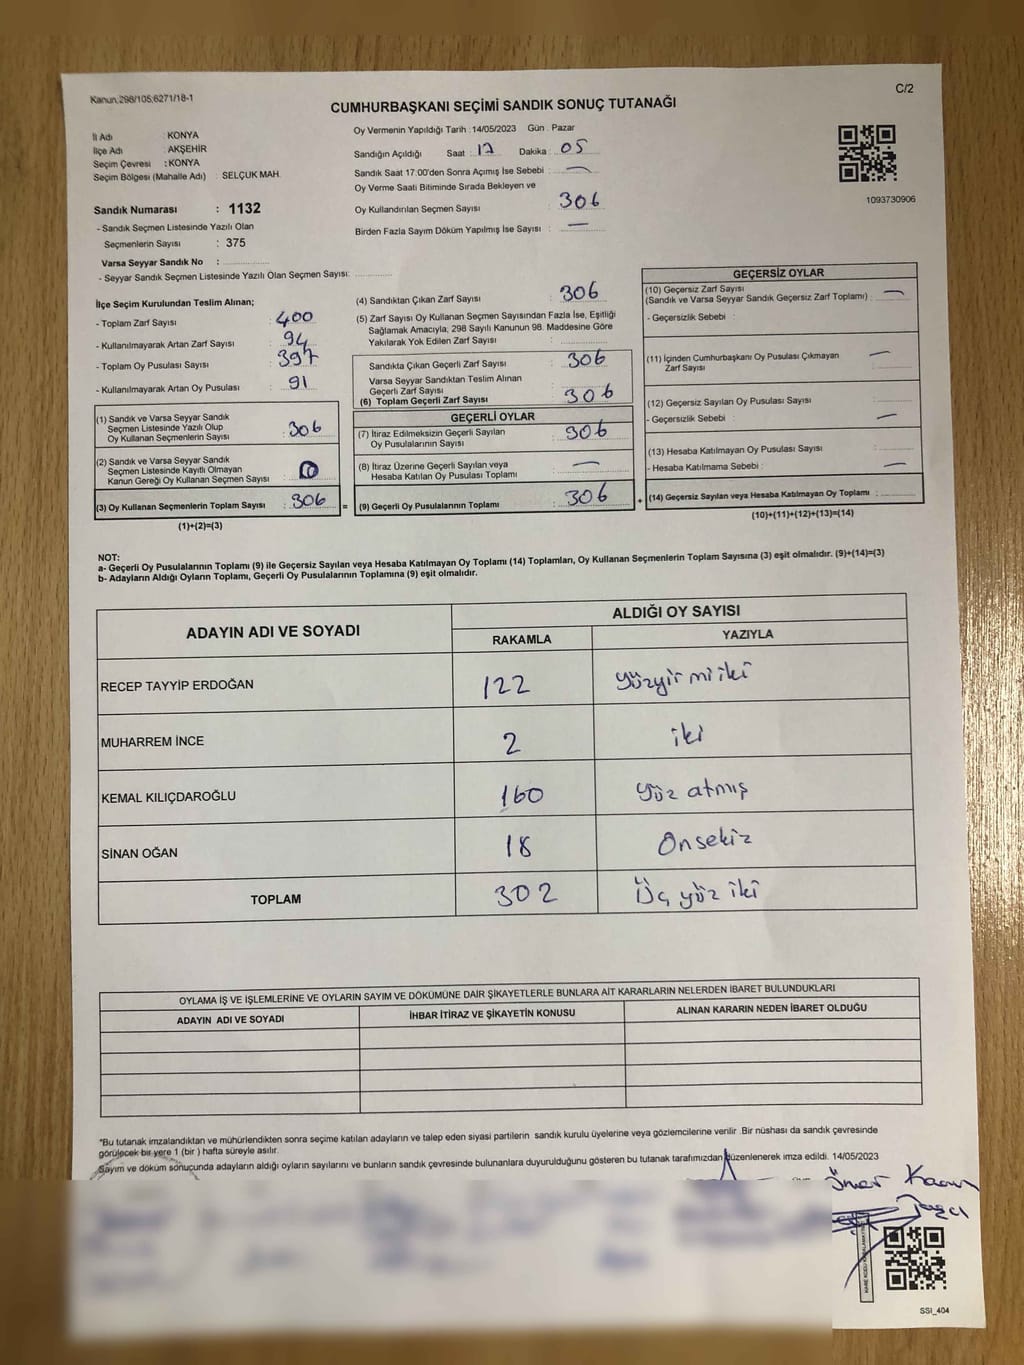 Kanun.298/105;6271/18-1
C/2
CUMHURBAŞKANI SEÇİMİ SANDIK SONUÇ TUTANAĞI
İl Adı : KONYA
İlçe Adı : AKŞEHİR
Seçim Çevresi : KONYA
Seçim Bölgesi (Mahalle Adı) : SELÇUK MAH.
Sandık Numarası : 1132
- Sandık Seçmen Listesinde Yazılı Olan
Seçmenlerin Sayısı : 375
Varsa Seyyar Sandık No :
- Seyyar Sandık Seçmen Listesinde Yazılı Olan Seçmen Sayısı:
Oy Vermenin Yapıldığı Tarih : 14/05/2023 Gün : Pazar
Sandığın Açıldığı Saat : 17 Dakika : 05
Sandık Saat 17:00'den Sonra Açımış İse Sebebi : —
Oy Verme Saati Bitiminde Sırada Bekleyen ve
Oy Kullandırılan Seçmen Sayısı : 306
Birden Fazla Sayım Döküm Yapılmış İse Sayısı : —
1093730906
İlçe Seçim Kurulundan Teslim Alınan;
- Toplam Zarf Sayısı : 400
- Kullanılmayarak Artan Zarf Sayısı : 94
- Toplam Oy Pusulası Sayısı : 397
- Kullanılmayarak Artan Oy Pusulası : 91
(1) Sandık ve Varsa Seyyar Sandık
Seçmen Listesinde Yazılı Olup
Oy Kullanan Seçmenlerin Sayısı : 306
(2) Sandık ve Varsa Seyyar Sandık
Seçmen Listesinde Kayıtlı Olmayan
Kanun Gereği Oy Kullanan Seçmen Sayısı : 0
(3) Oy Kullanan Seçmenlerin Toplam Sayısı : 306 =
(1)+(2)=(3)
(4) Sandıktan Çıkan Zarf Sayısı : 306
(5) Zarf Sayısı Oy Kullanan Seçmen Sayısından Fazla İse, Eşitliği
Sağlamak Amacıyla, 298 Sayılı Kanunun 98. Maddesine Göre
Yakılarak Yok Edilen Zarf Sayısı :
Sandıkta Çıkan Geçerli Zarf Sayısı : 306
Varsa Seyyar Sandıktan Teslim Alınan
Geçerli Zarf Sayısı :
(6) Toplam Geçerli Zarf Sayısı : 306
GEÇERLİ OYLAR
(7) İtiraz Edilmeksizin Geçerli Sayılan
Oy Pusulalarının Sayısı : 306
(8) İtiraz Üzerine Geçerli Sayılan veya
Hesaba Katılan Oy Pusulası Toplamı : —
(9) Geçerli Oy Pusulalarının Toplamı : 306 +
GEÇERSİZ OYLAR
(10) Geçersiz Zarf Sayısı
(Sandık ve Varsa Seyyar Sandık Geçersiz Zarf Toplamı) : —
- Geçersizlik Sebebi :
(11) İçinden Cumhurbaşkanı Oy Pusulası Çıkmayan
Zarf Sayısı : —
(12) Geçersiz Sayılan Oy Pusulası Sayısı :
- Geçersizlik Sebebi : —
(13) Hesaba Katılmayan Oy Pusulası Sayısı :
- Hesaba Katılmama Sebebi : —
(14) Geçersiz Sayılan veya Hesaba Katılmayan Oy Toplamı :
(10)+(11)+(12)+(13)=(14)
NOT:
a- Geçerli Oy Pusulalarının Toplamı (9) ile Geçersiz Sayılan veya Hesaba Katılmayan Oy Toplamı (14) Toplamları, Oy Kullanan Seçmenlerin Toplam Sayısına (3) eşit olmalıdır. (9)+(14)=(3)
b- Adayların Aldığı Oyların Toplamı, Geçerli Oy Pusulalarının Toplamına (9) eşit olmalıdır.
ADAYIN ADI VE SOYADI ALDIĞI OY SAYISI
RAKAMLA YAZIYLA
RECEP TAYYİP ERDOĞAN 122 yüzyirmiiki
MUHARREM İNCE 2 iki
KEMAL KILIÇDAROĞLU 160 yüz atmış
SİNAN OĞAN 18 Onsekiz
TOPLAM 302 Üç yüz iki
OYLAMA İŞ VE İŞLEMLERİNE VE OYLARIN SAYIM VE DÖKÜMÜNE DAİR ŞİKAYETLERLE BUNLARA AİT KARARLARIN NELERDEN İBARET BULUNDUKLARI
ADAYIN ADI VE SOYADI İHBAR İTİRAZ VE ŞİKAYETİN KONUSU ALINAN KARARIN NEDEN İBARET OLDUĞU
*Bu tutanak imzalandıktan ve mühürlendikten sonra seçime katılan adayların ve talep eden siyasi partilerin sandık kurulu üyelerine veya gözlemcilerine verilir. Bir nüshası da sandık çevresinde
görülecek bir yere 1 (bir ) hafta süreyle asılır.
Sayım ve döküm sonucunda adayların aldığı oyların sayılarını ve bunların sandık çevresinde bulunanlara duyurulduğunu gösteren bu tutanak tarafımızdan düzenlenerek imza edildi. 14/05/2023
Ömer
SSI_404